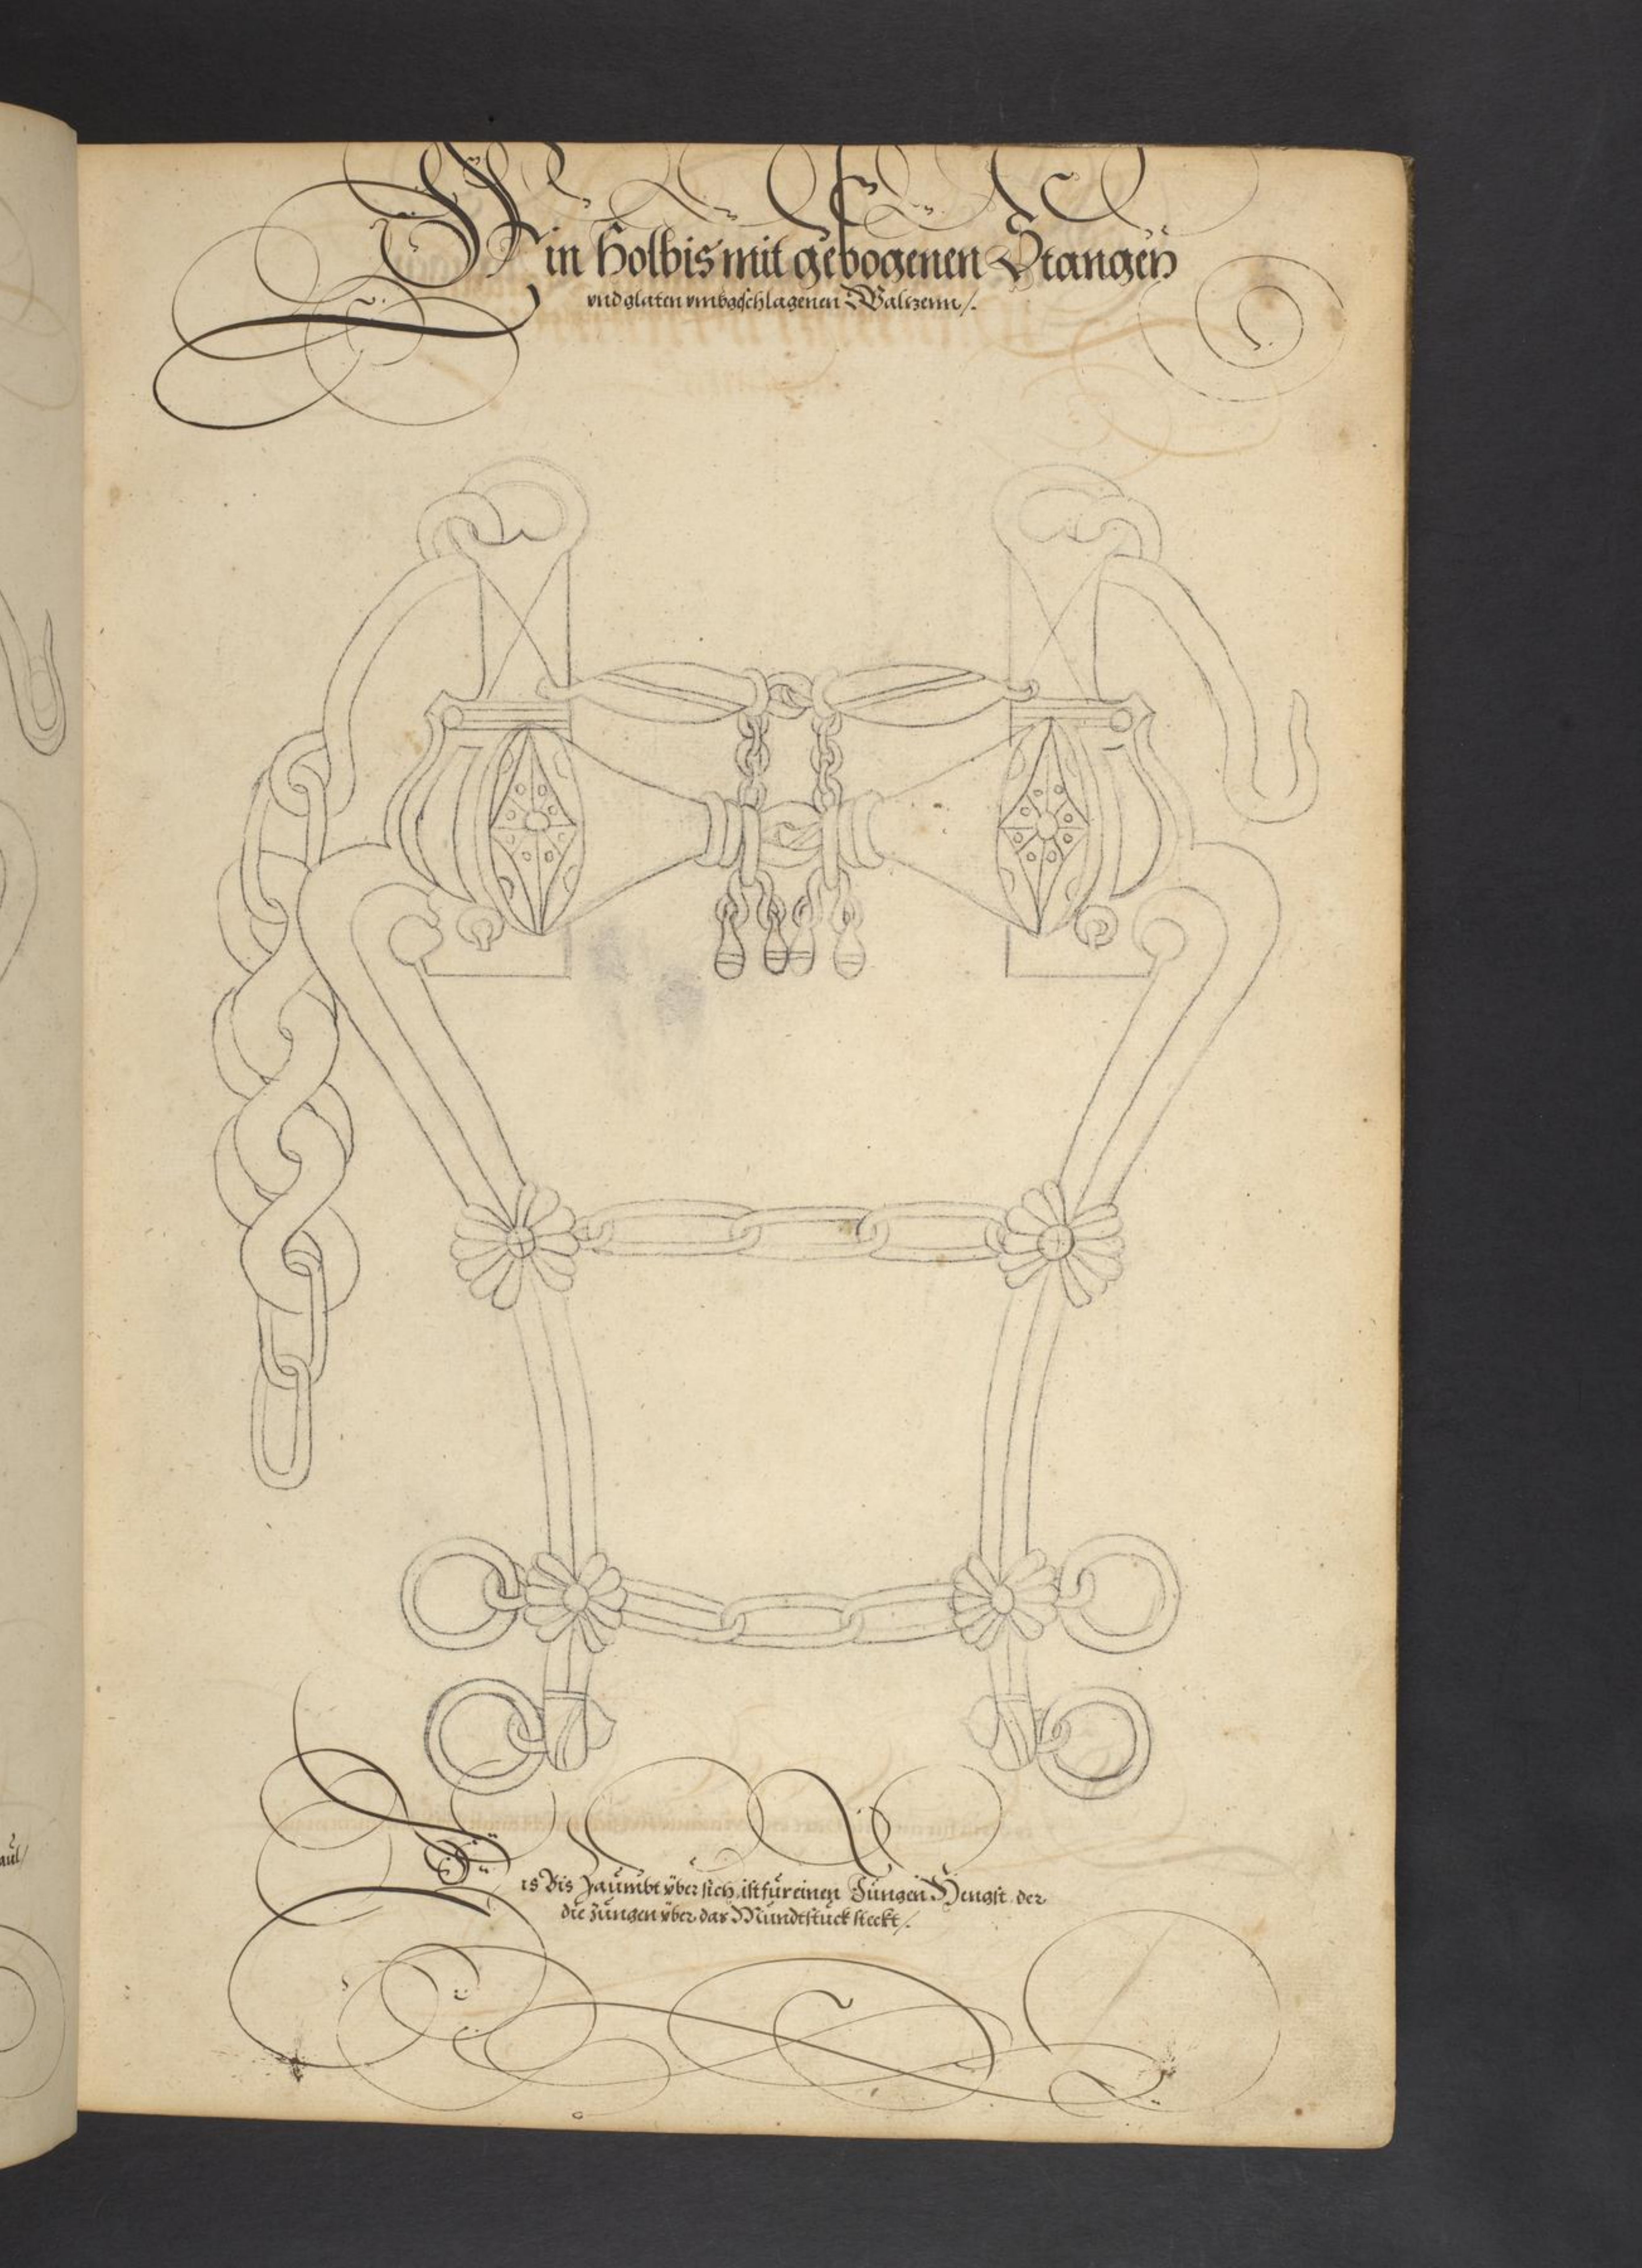 Ein Holbis mit gebogenen Stangen
vnd glaten vmbgeschlagenen Waltzenn /.
aul /
Dis Bis Zaumbt vber sich, ist fur einen Jungen Hengst der
die Zungen vber das Mundtstuck steckt /.